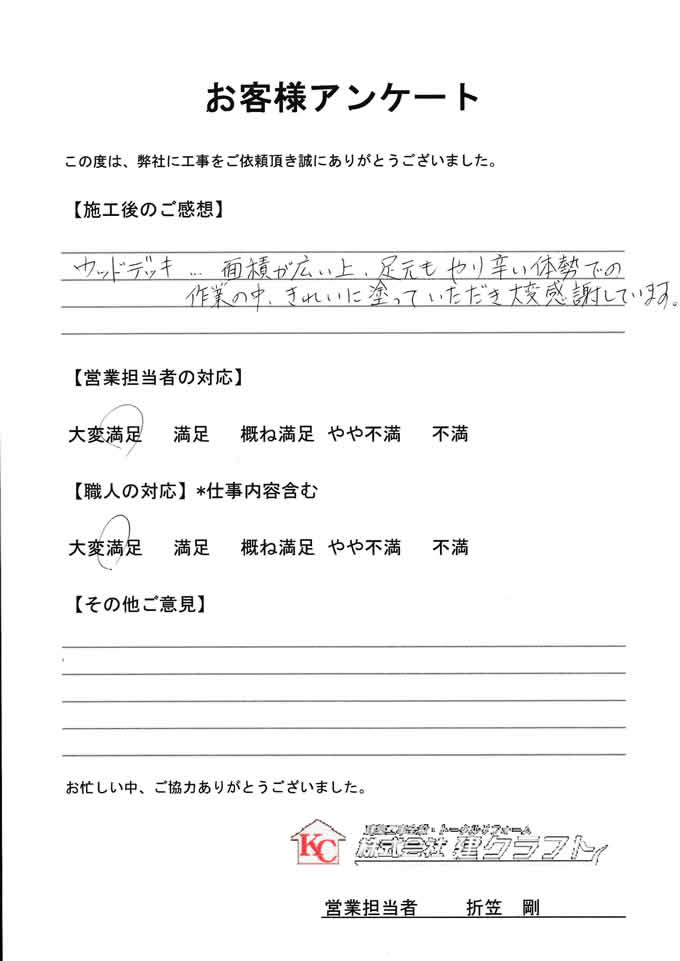 お客様アンケート
この度は、弊社に工事をご依頼頂き誠にありがとうございました。
【施工後のご感想】
ウッドデッキ… 面積が広い上、足元もやり辛い体勢での
作業の中、きれいに塗っていただき大変感謝しています。
【営業担当者の対応】
大変満足 満足 概ね満足 やや不満 不満
【職人の対応】*仕事内容含む
大変満足 満足 概ね満足 やや不満 不満
【その他ご意見】
お忙しい中、ご協力ありがとうございました。
KC
トータルリフォーム
株式会社 建クラフト
営業担当者 折笠 剛